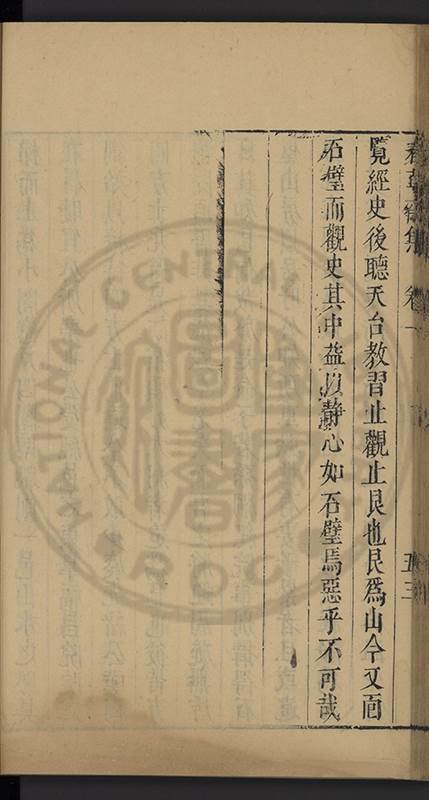 覽經史後聽天台教習止觀止艮也艮為山今又面
石壁而觀史其中益以靜心如石壁焉惡乎不可哉
集 卷一
五三